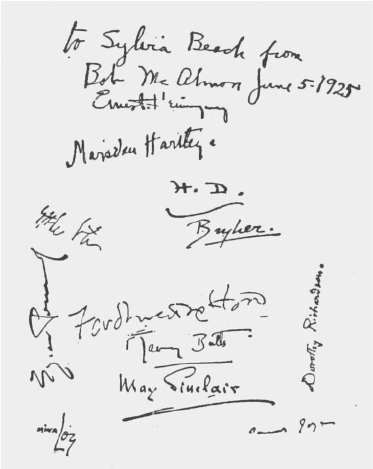 to Sylvia Beach from
Bob McAlmon June 5-1925
Ernest Hemingway
Marsden Hartley.
H. D.
Bryher.
Edith Sitwell
Ezra Pound
Ford Madox Ford
Mary Butts
May Sinclair
Dorothy Richardson.
mina Loy
James Joyce